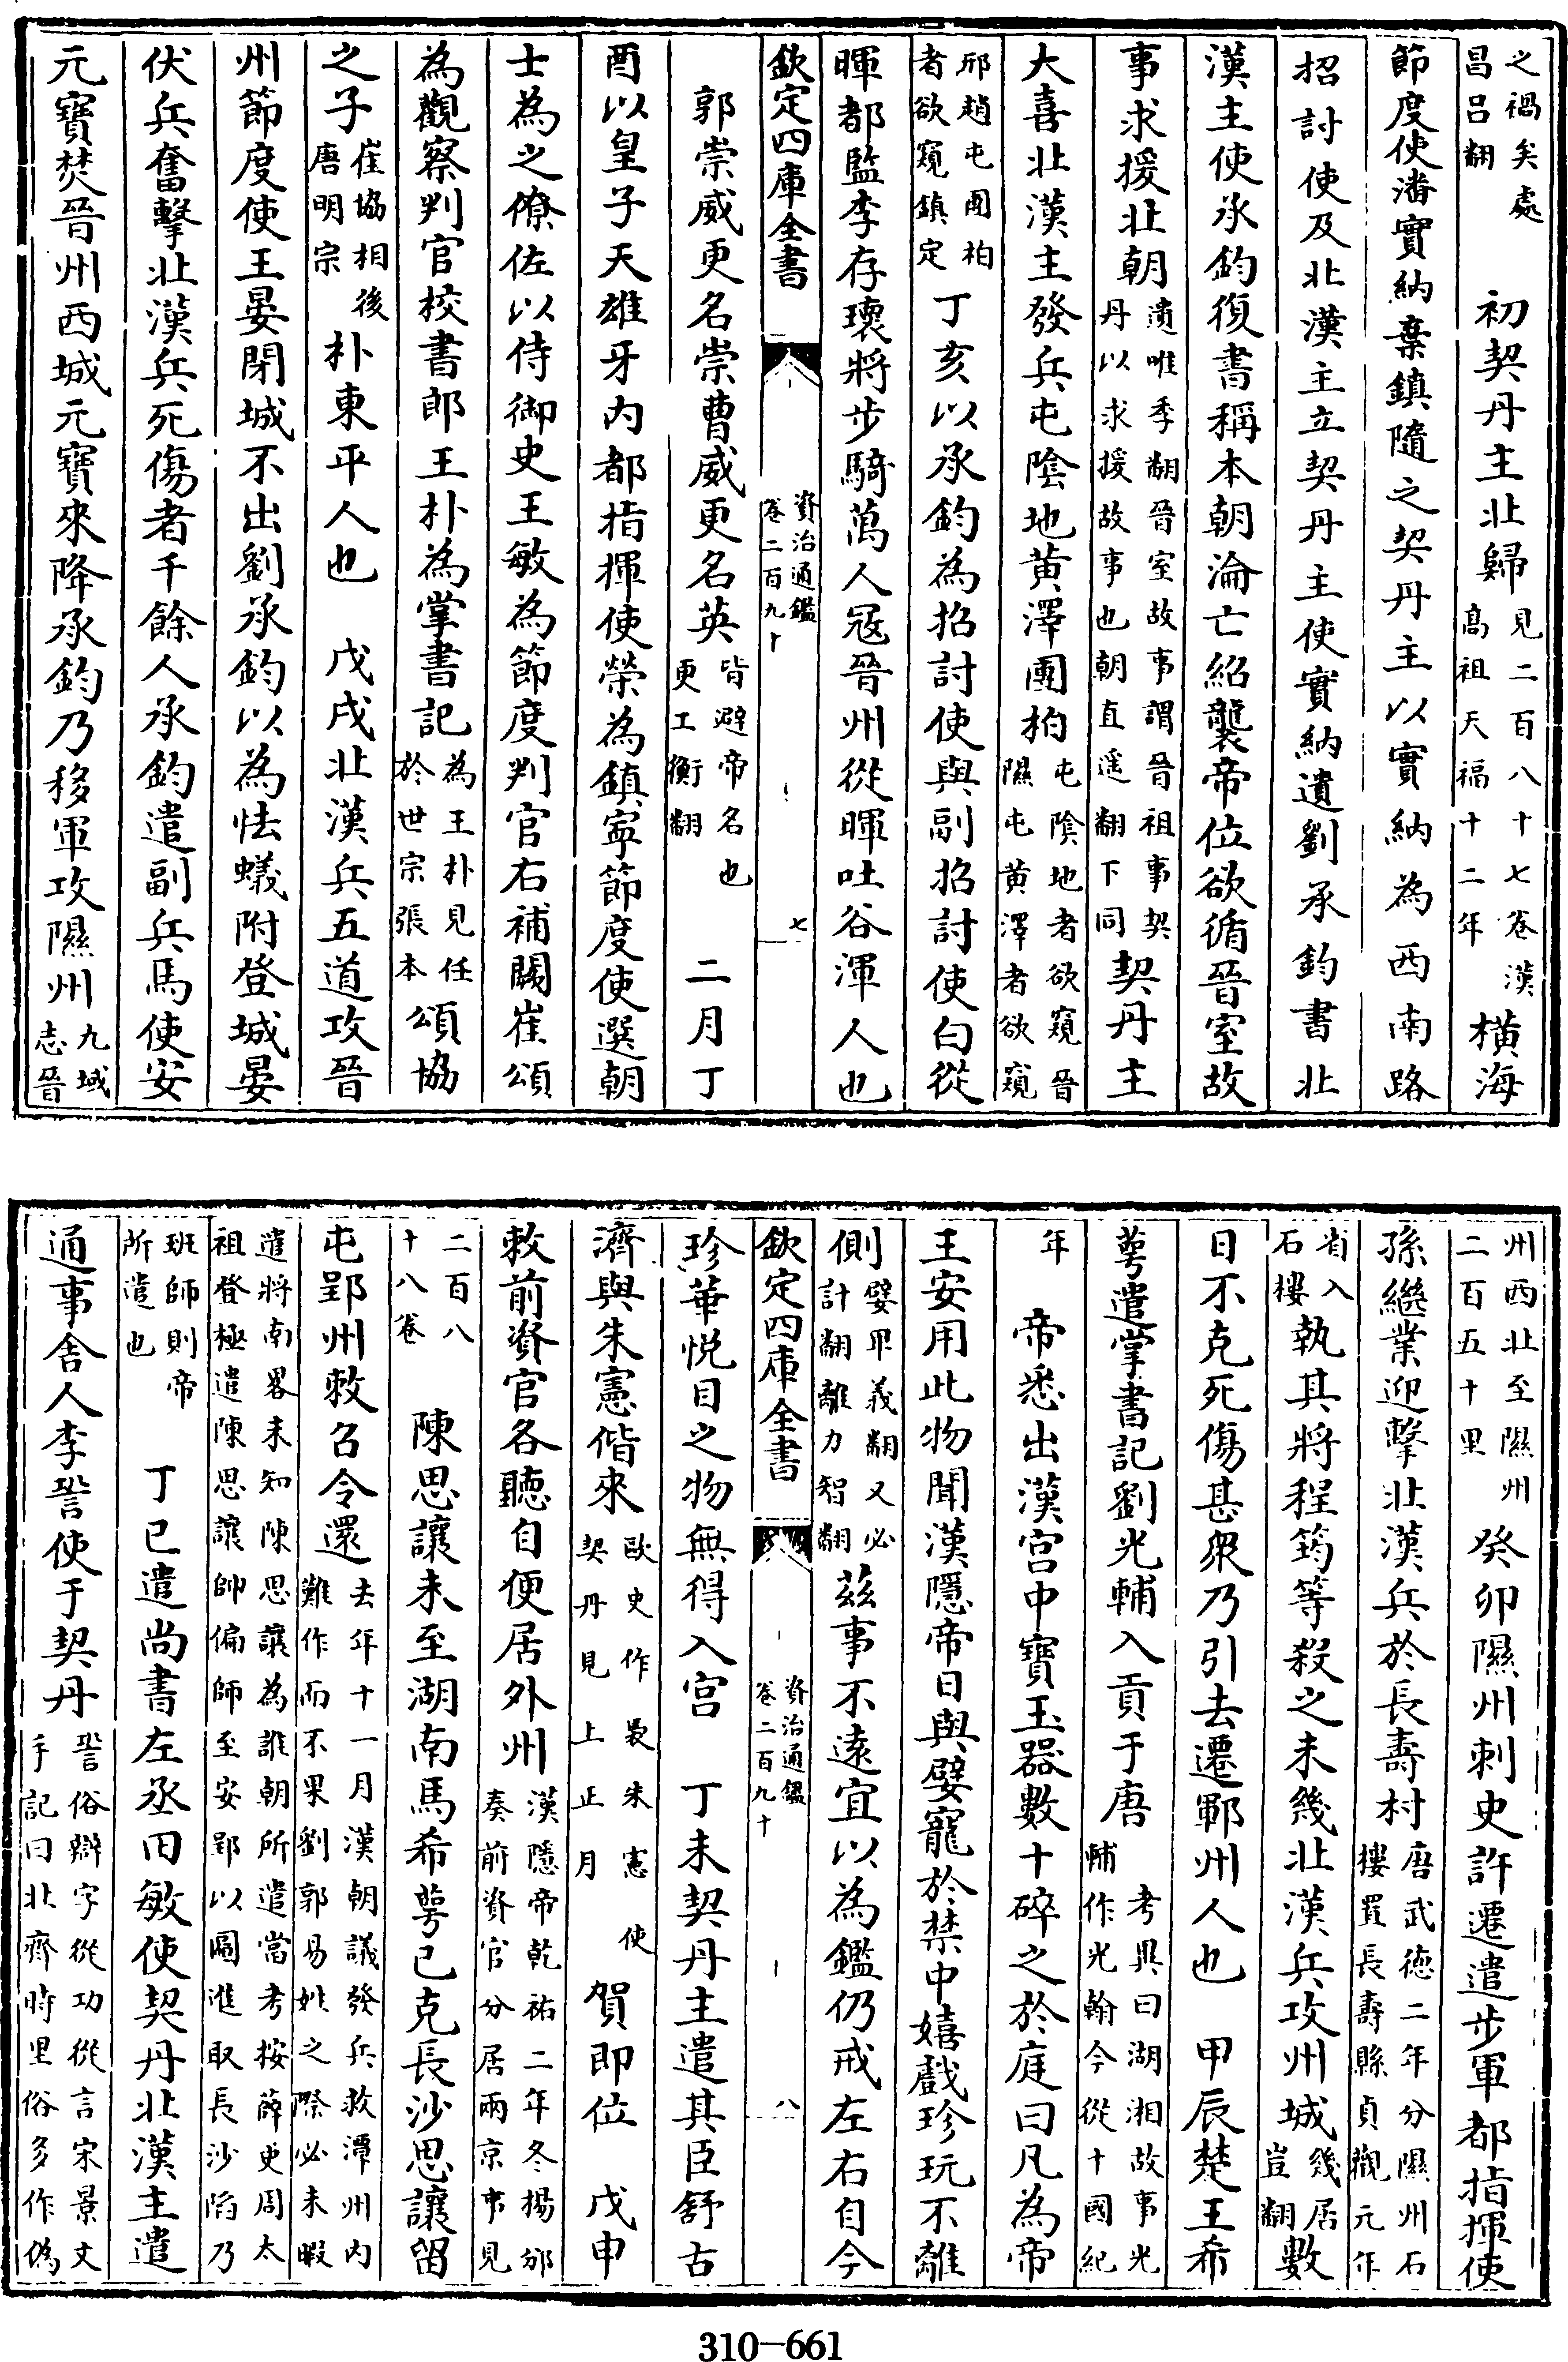 之禍矣處昌呂翻　初契丹主北歸見二百八十七卷漢高祖天福十二年橫海
節度使潘實納棄鎮隨之契丹主以實納為西南路
招討使及北漢主立契丹主使實納遺劉承鈞書北
漢主使承鈞復書稱本朝淪亡紹襲帝位欲循晉室故
事求援北朝遺唯季翻晉室故事謂晉祖事契丹以求援故事也朝直遥翻下同契丹主
大喜北漢主發兵屯隂地黄澤團柏屯隂地者欲窺晉隰屯黄澤者欲窺
邢趙屯團柏者欲窺鎮定丁亥以承鈞為招討使與副招討使白從
暉都監李存瓌將步騎萬人冦晉州從暉吐谷渾人也
欽定四庫全書　資治通鑑卷二百九十　七
郭崇威更名崇曹威更名英皆避帝名也更工衡翻　二月丁
酉以皇子天雄牙内都指揮使榮為鎮寜節度使選朝
士為之僚佐以侍御史王敏為節度判官右補闕崔頌
為觀察判官校書郎王朴為掌書記為王朴見任於世宗張本頌協
之子崔協相後唐明宗朴東平人也　戊戌北漢兵五道攻晉
州節度使王晏閉城不出劉承鈞以為怯蟻附登城晏
伏兵奮擊北漢兵死傷者千餘人承鈞遣副兵馬使安
元寶焚晉州西城元寶來降承鈞乃移軍攻隰州九域志晉
州西北至隰州二百五十里癸卯隰州刺史許遷遣步軍都指揮使
孫繼業迎擊北漢兵於長壽村唐武德二年分隰州石樓置長壽縣貞觀元年
省入石樓執其將程筠等殺之未幾北漢兵攻州城幾居豈翻數
日不克死傷甚衆乃引去遷鄆州人也　甲辰楚王希
萼遣掌書記劉光輔入貢于唐考異曰湖湘故事光輔作光翰今從十國紀
年　帝悉出漢宫中寶玉器數十碎之於庭曰凡為帝
王安用此物聞漢隱帝日與嬖寵於禁中嬉戲珍玩不離
側嬖卑義翻又必計翻離力智翻兹事不遠宜以為鑑仍戒左右自今
欽定四庫全書　資治通鑑卷二百九十　八
珍華悦目之物無得入宫　丁未契丹主遣其臣舒古
濟與朱憲偕來歐史作裊朱憲使契丹見上正月賀即位　戊申
敕前資官各聽自便居外州漢隱帝乾祐二年冬楊邠奏前資官分居兩京事見
二百八十八卷　陳思讓未至湖南馬希萼已克長沙思讓留
屯郢州敕召令還去年十一月漢朝議發兵救潭州内難作而不果劉郭易姓之際必未暇
遣將南畧未知陳思讓為誰朝所遣當考按薛史周太祖登極遣陳思讓帥偏師至安郢以圖進取長沙陷乃
班師則帝所遣也　丁巳遣尚書左丞田敏使契丹北漢主遣
通事舍人李䛒使于契丹䛒俗辯字從功從言宋景文手記曰北齊時里俗多作偽
310-661